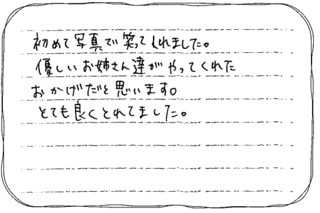 初めて写真で笑ってくれました。
優しいお姉さん達がやってくれた
おかげだと思います。
とても良くとれてました。